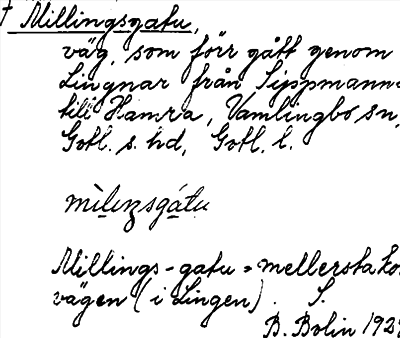 † Millingsgatu,
väg, som förr gått genom
Lingnar från Sippmanns
till Hamra, Vamlingbo sn,
Gotl. s. hd, Gotl. l.
mìlıŋsgátu
Millings-gatu = mellersta
vägen (i Lingen). S.
B. Bolin